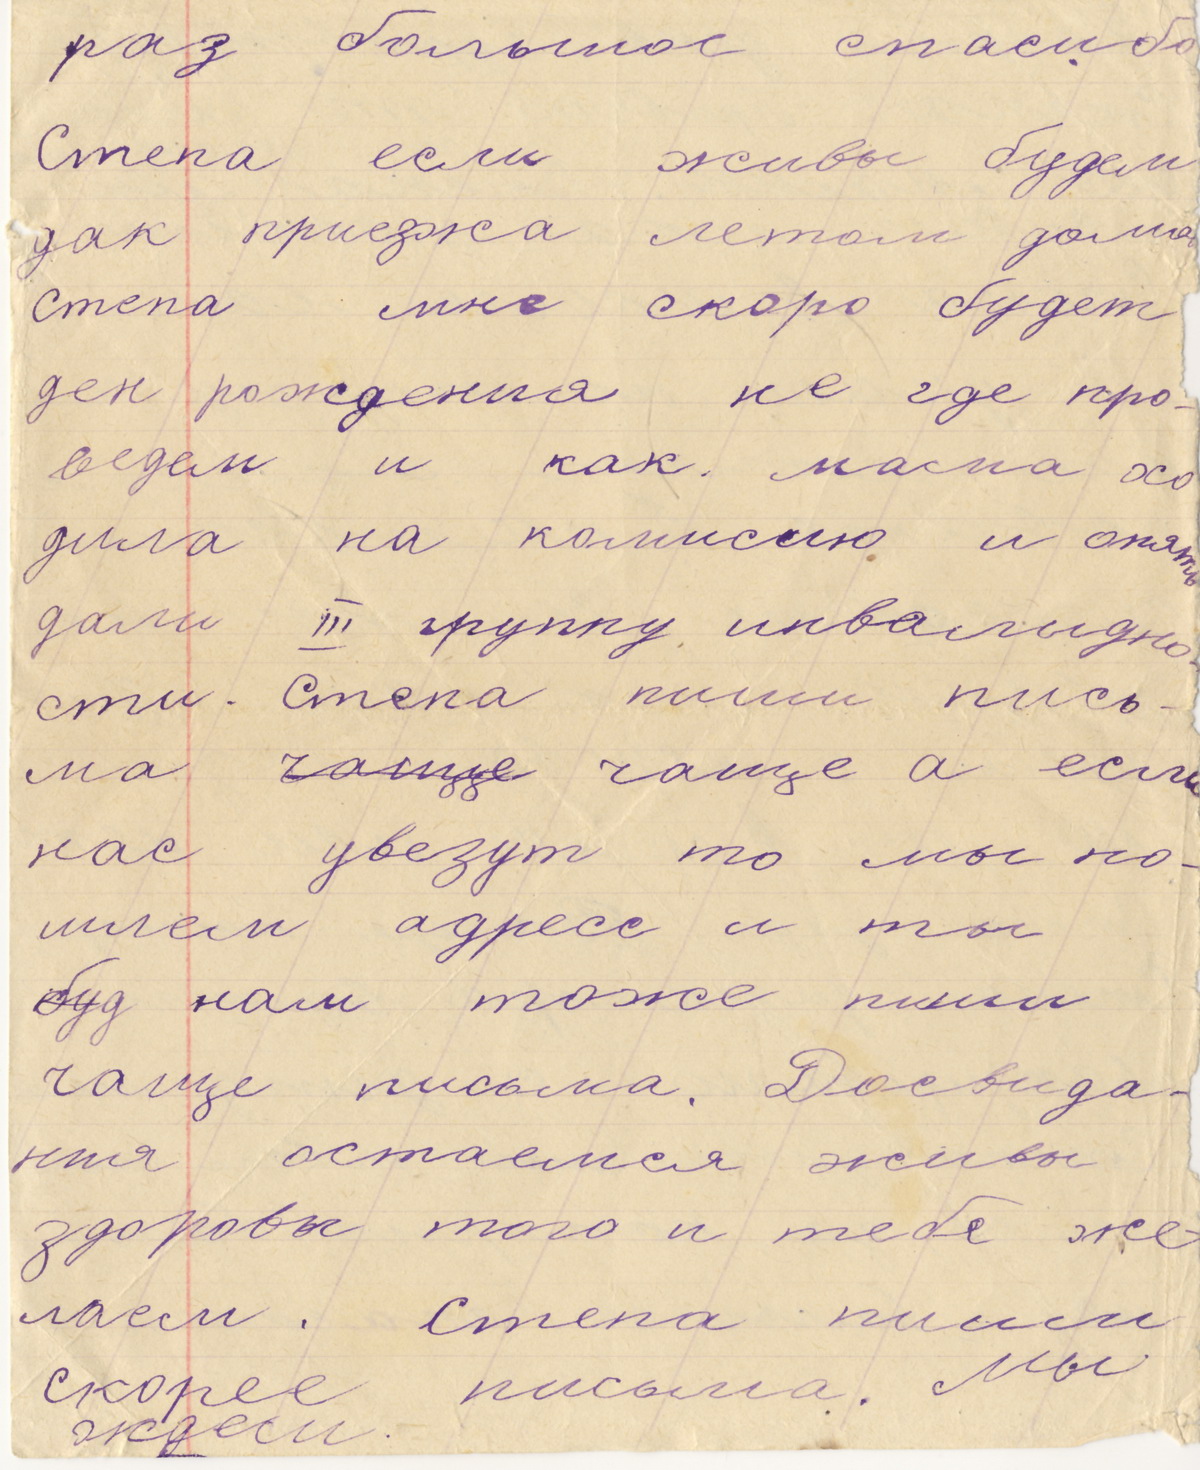 раз большое спасибо
Степа если живы будем
дак приезжа летом домой
степа мне скоро будет
ден рождения не где про-
ведем и как. мама хо
дила на комиссию и опять
дали III группу инвалидно-
сти. Степа пиши пись-
ма чаще чаще а если
нас увезут то мы по-
шлем адресс и ты
буд нам тоже пиши
чаще письма. Досвида-
ния остаемся живы
здоровы того и тебе же
лаем. Степа пиши
скорее письма. Мы
ждем.